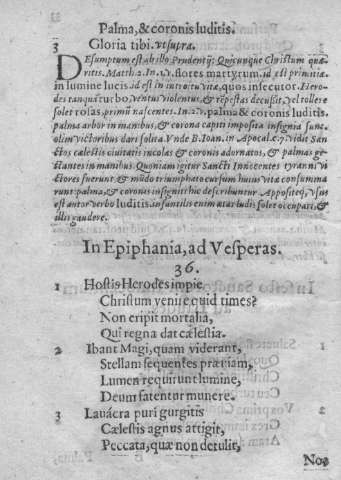 Palma, & coronis luditis.
3 Gloria tibi. vt supra.
DEsumptum est ab illo Prudentij; Quicunque Christum quæ-
ritis. Matth. 2. In. 1. v. flores martyrum. id est primitiæ.
in lumine lucis. id est in introitu vitæ, quos insecutor. Hero-
des tanquã turbo, ventus violentus, & tẽpestas decussit, vel tollere
solet rosas, primũ nascentes. In. 2. v. palma & coronis luditis.
palma arbor in manibus, & corona capiti imposita insignia sunt
olim victoribus dari solita. Vnde B. Ioan. in Apocal. c. 7. vidit San-
ctos cælestis ciuitatis incolas & coronis adornatos, & palmas ge-
stantes in manibus. Quoniam igitur Sancti Innocentes tyranni vi-
ctores fuerunt & mũdo triumphato cursum huius vitæ consumma
runt: palma, & coronus insigniti hic describuntur. Appositeq́, vsus
est autor verbo luditis. infantilis enim ætas ludis solet occupari, &
illis gaudere.
In Epiphania, ad Vesperas.
36.
1 Hostis Herodes impie
Christum venire quid times?
Non eripit mortalia,
Qui regna dat cælestia.
2 Ibant Magi, quam viderant,
Stellam sequentes præuiam,
Lumen requirunt lumine,
Deum fatentur munere.
3 Lauácra puri gurgitis
Cælestis agnus attigit,
Peccata, quæ non detulit,
Nos